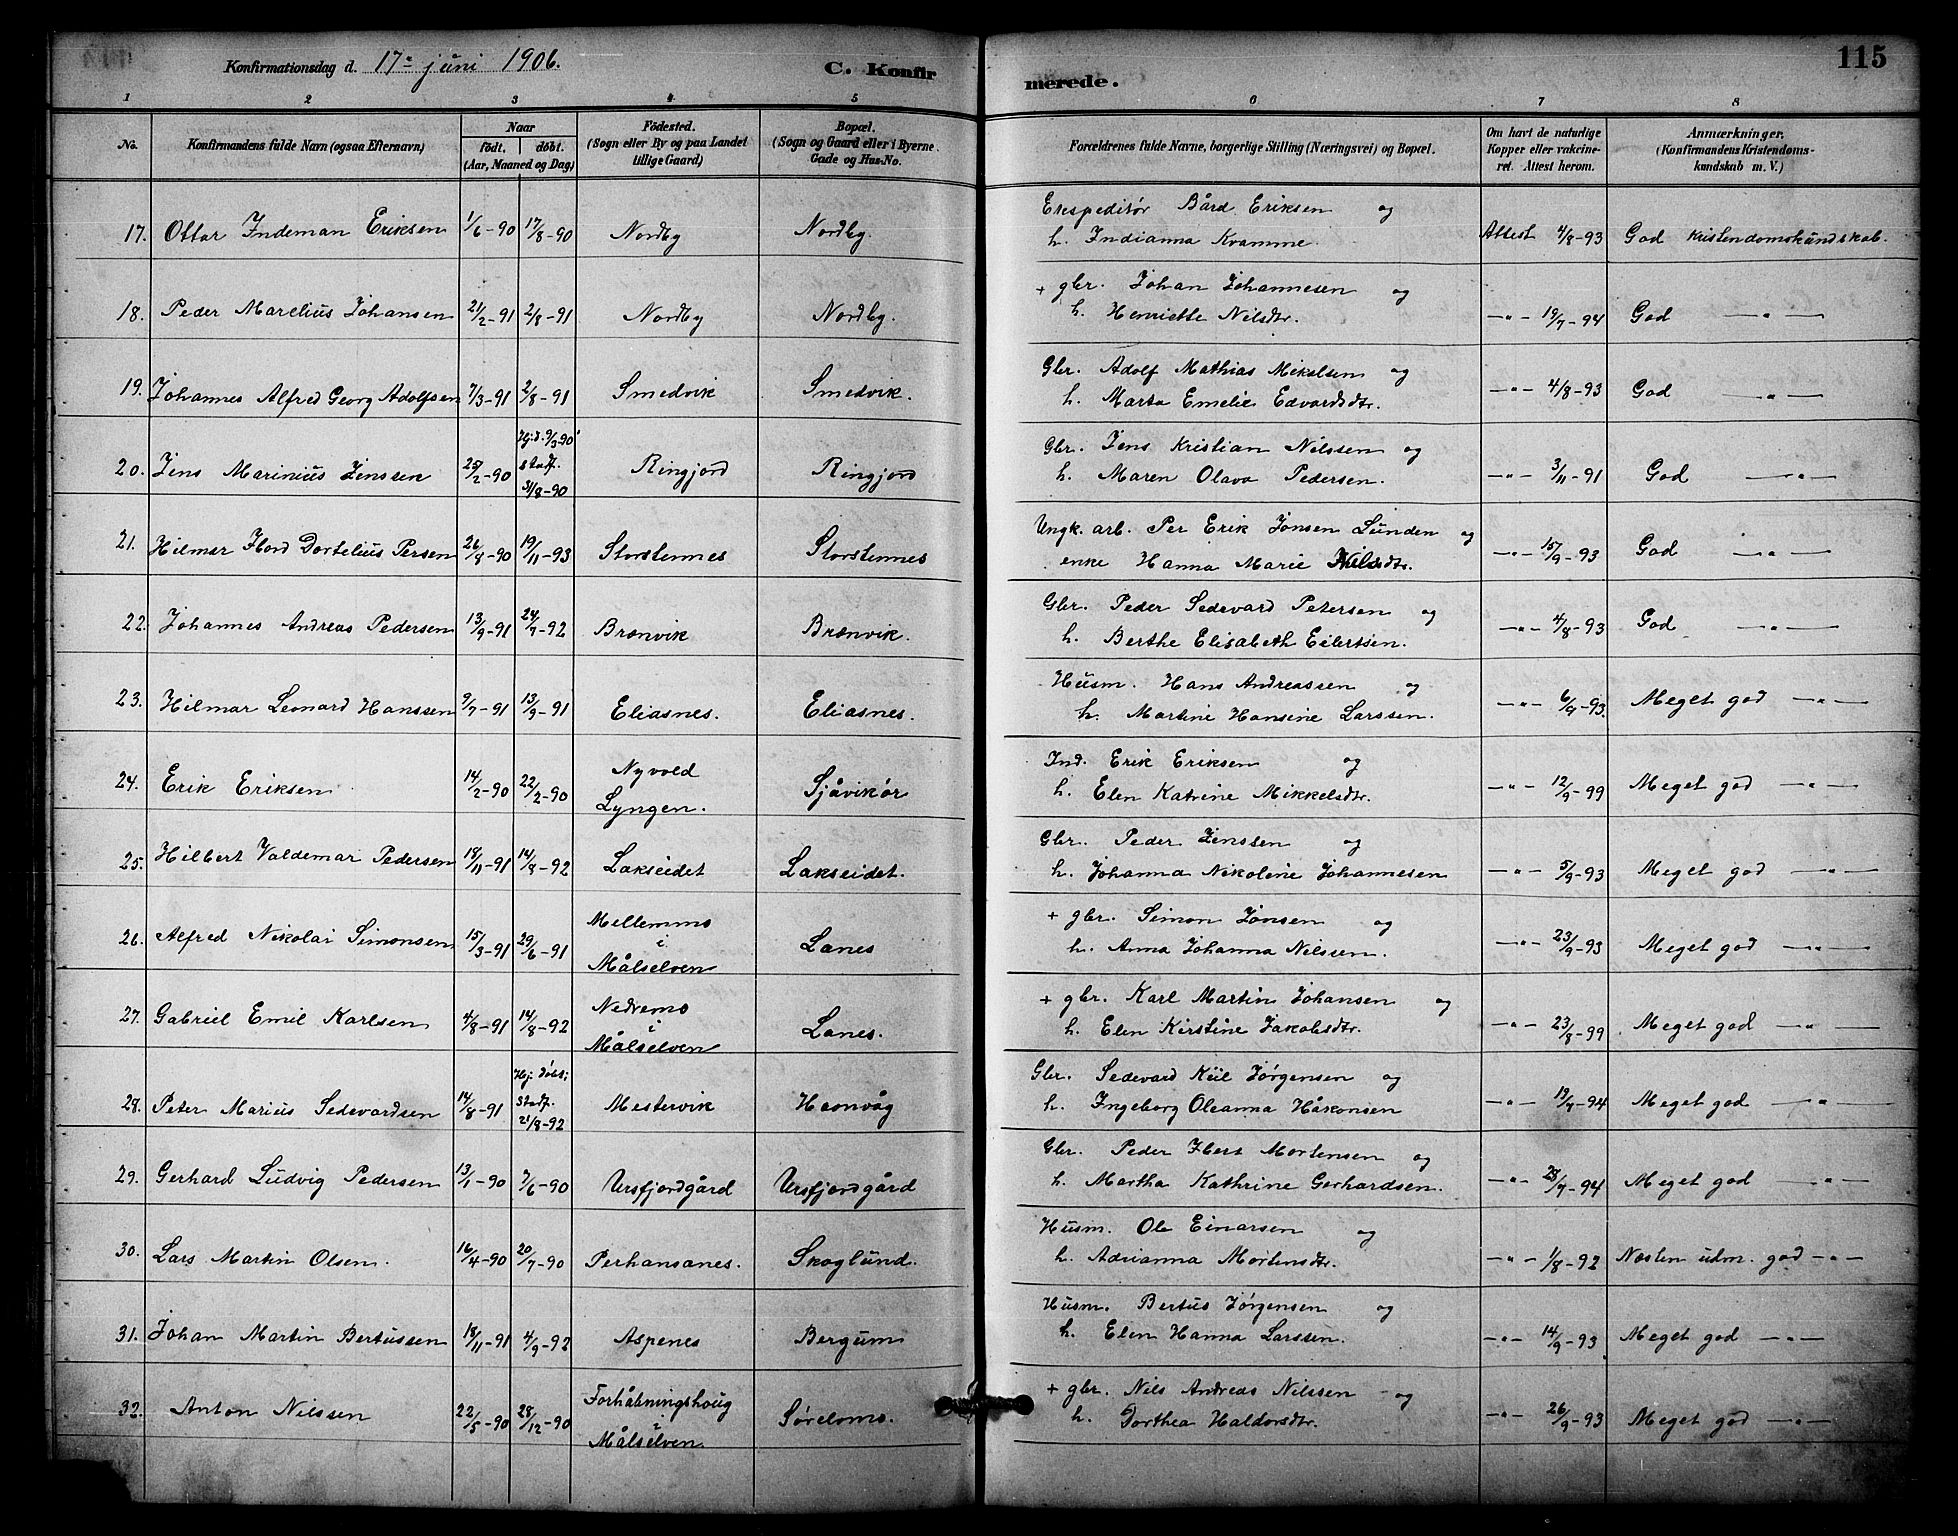 Konfirmationsdag d. 17de juni 1906.
C. Konfir
merede.
115
1 2 3 4 5 6 7 8
No.
Konfirmandens fulde Navn (ogsaa Efternavn)
Naar
født. døbt.
(Aar, Maaned og Dag)
Fødested.
(Sogn eller By og paa Landet
tillige Gaard)
Bopæl.
(Sogn og Gaard eller i Byerne
Gade og Hus-No.
Forældrenes fulde Navne, borgerlige Stilling (Næringsvei) og Bopæl.
Om havt de naturlige
Kopper eller vakcine-
ret. Attest herom.
Anmærkninger,
(Konfirmandens Kristendoms-
kundskab m. V.)
Ekspeditør Bård Eriksen og
17. Ottar Indeman Eriksen 1/6-90 17/8-90 Nordby Nordby. h. Indianna Kvamme. Attest 4/8-93 God Kristendomskundskab.
+ gbr. Johan Johannesen og
18. Peder Marelius Johansen 21/2-91 2/8-91 Nordby Nordby. h. Henriette Nilsdtr. —"— 19/7-94 God —"—
Gbr. Adolf Mathias Mikelsen og
19. Johannes Alfred Georg Adolfsen 7/3-91 2/8-91 Smedvik Smedvik. h. Marta Emelie Edvardsdtr. —"— 4/8-93 God —"—
Hj. d. 9/3-90 Gbr. Jens Kristian Nilssen og
20. Jens Marinius Jenssen 25/2-90 stadf. Ringjord Ringjord h. Maren Olava Pedersen. —"— 3/11-91 God —"—
31/8-90
Ungk. arb. Per Erik Jonsen Lunden og
21. Hilmar Hord Dortelius Persen 26/8-90 19/11-93 Storstennes Storstennes enke Hanna Marie Nilsdtr. —"— 15/9-93 God —"—
Gbr. Peder Sedevard Petersen og
22. Johannes Andreas Pedersen 13/9-91 24/7-92 Brænvik Brænvik. h. Berthe Elisabeth Eilertsen. —"— 4/8-93 God —"—
Husm. Hans Andreassen og
23. Hilmar Leonard Hanssen 9/7-91 13/9-91 Eliasnes. Eliasnes. h. Martine Hansine Larssen. —"— 6/9-93. Meget god —"—
Nyvold Ind. Erik Eriksen og
24. Erik Eriksen 14/2-90 22/2-90 Lyngen. Sjåvikør h. Elen Katrine Mikkelsdtr. —"— 12/9-99 Meget god —"—
Gbr. Peder Jenssen og
25. Hilbert Valdemar Pedersen 18/11-91 14/8-92 Lakseidet Lakseidet. h. Johanna Nikoline Johannesen —"— 5/9-93 Meget god —"—
Mellemmo + gbr. Simon Jonsen og
26. Alfred Nikolai Simonsen 15/3-91 29/6-91 i Lanes h. Anna Johanna Nilssen. —"— 23/9-93 Meget god —"—
Målselven
Nedremo + gbr. Karl Martin Johansen og
27. Gabriel Emil Karlsen 4/8-91 14/8-92 i Lanes. h. Elen Kirstine Jakobsdtr. —"— 23/8-99 Meget god —"—
Målselven
Hj. døbt; Gbr. Sedevard Kiil Jørgensen og
28. Peter Marius Sedevardsen 14/8-91 stadf. Mestervik Havnvåg h. Ingeborg Oleanna Håkonsen —"— 19/7-94 Meget god —"—
21/8-92
Gbr. Peder Hert Mortensen og
29. Gerhard Ludvig Pedersen 13/1-90 7/6-90 Ursfjordgård Ursfjordgård h. Martha Kathrine Gerhardsen. —"— 23/7-94 Meget god —"—
Husm. Ole Einarsen og
30. Lars Martin Olsen. 16/4-90 20/7-90 Perhansanes. Skoglund. h. Adrianna Mortensdtr. —"— 1/8-92 Næsten udm. god —"—
Husm. Bertus Jørgensen og
31. Johan Martin Bertussen 18/11-91 4/9-92 Aspenes Bergum h. Elen Hanna Larssen. —"— 14/9-93 Meget god —"—
Forhåbningshoug + gbr. Nils Andreas Nilssen - og
32. Anton Nilssen 22/5-90 28/12-90 i Søreloms. h. Dorthea Haldorsdtr. —"— 26/9-93 Meget god —"—
Målselven